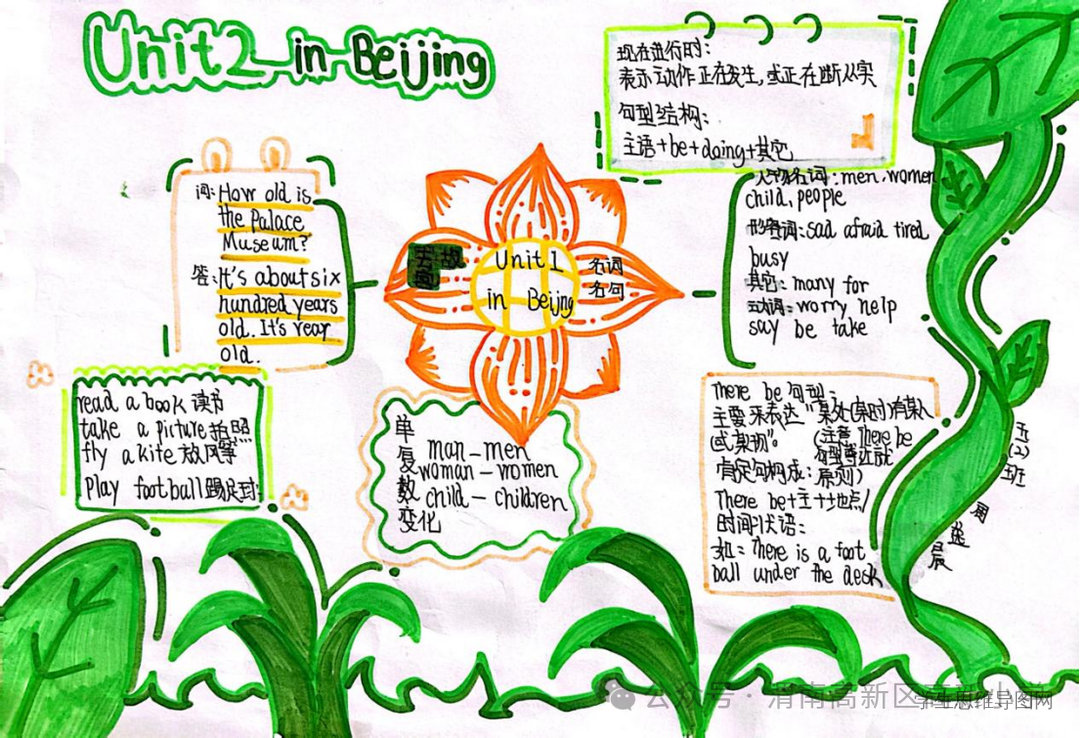 Unit2 in Beijing
现在进行时:
表示动作正在发生,或正在断从实
句型结构:
主语+be+doing+其它
问:How old is
the Palace
Museum?
答:It's about six
hundred years
old. It's year
old.
去故
宫
Unit 1
in Beijng
名词
名句
人物名词:men.women
child, people
形容词:sad afraid tired
busy
其它:many for
动词:worry help
say be take
read a book 读书
take a picture 拍照
fly a kite 放风筝
Play football 踢足球
单
复
数
变化
man—men
woman—women
child—children
There be句型:
主要来表达“某处(某时)有某人
或某物”。
(注意There be
句型尊近就
原则)
肯定句构成:
There be+主++地点/
时间状语:
如:There is a foot
ball under the desk
五(2)班
周
晨
公众号·渭南高新区
学生思维导图网